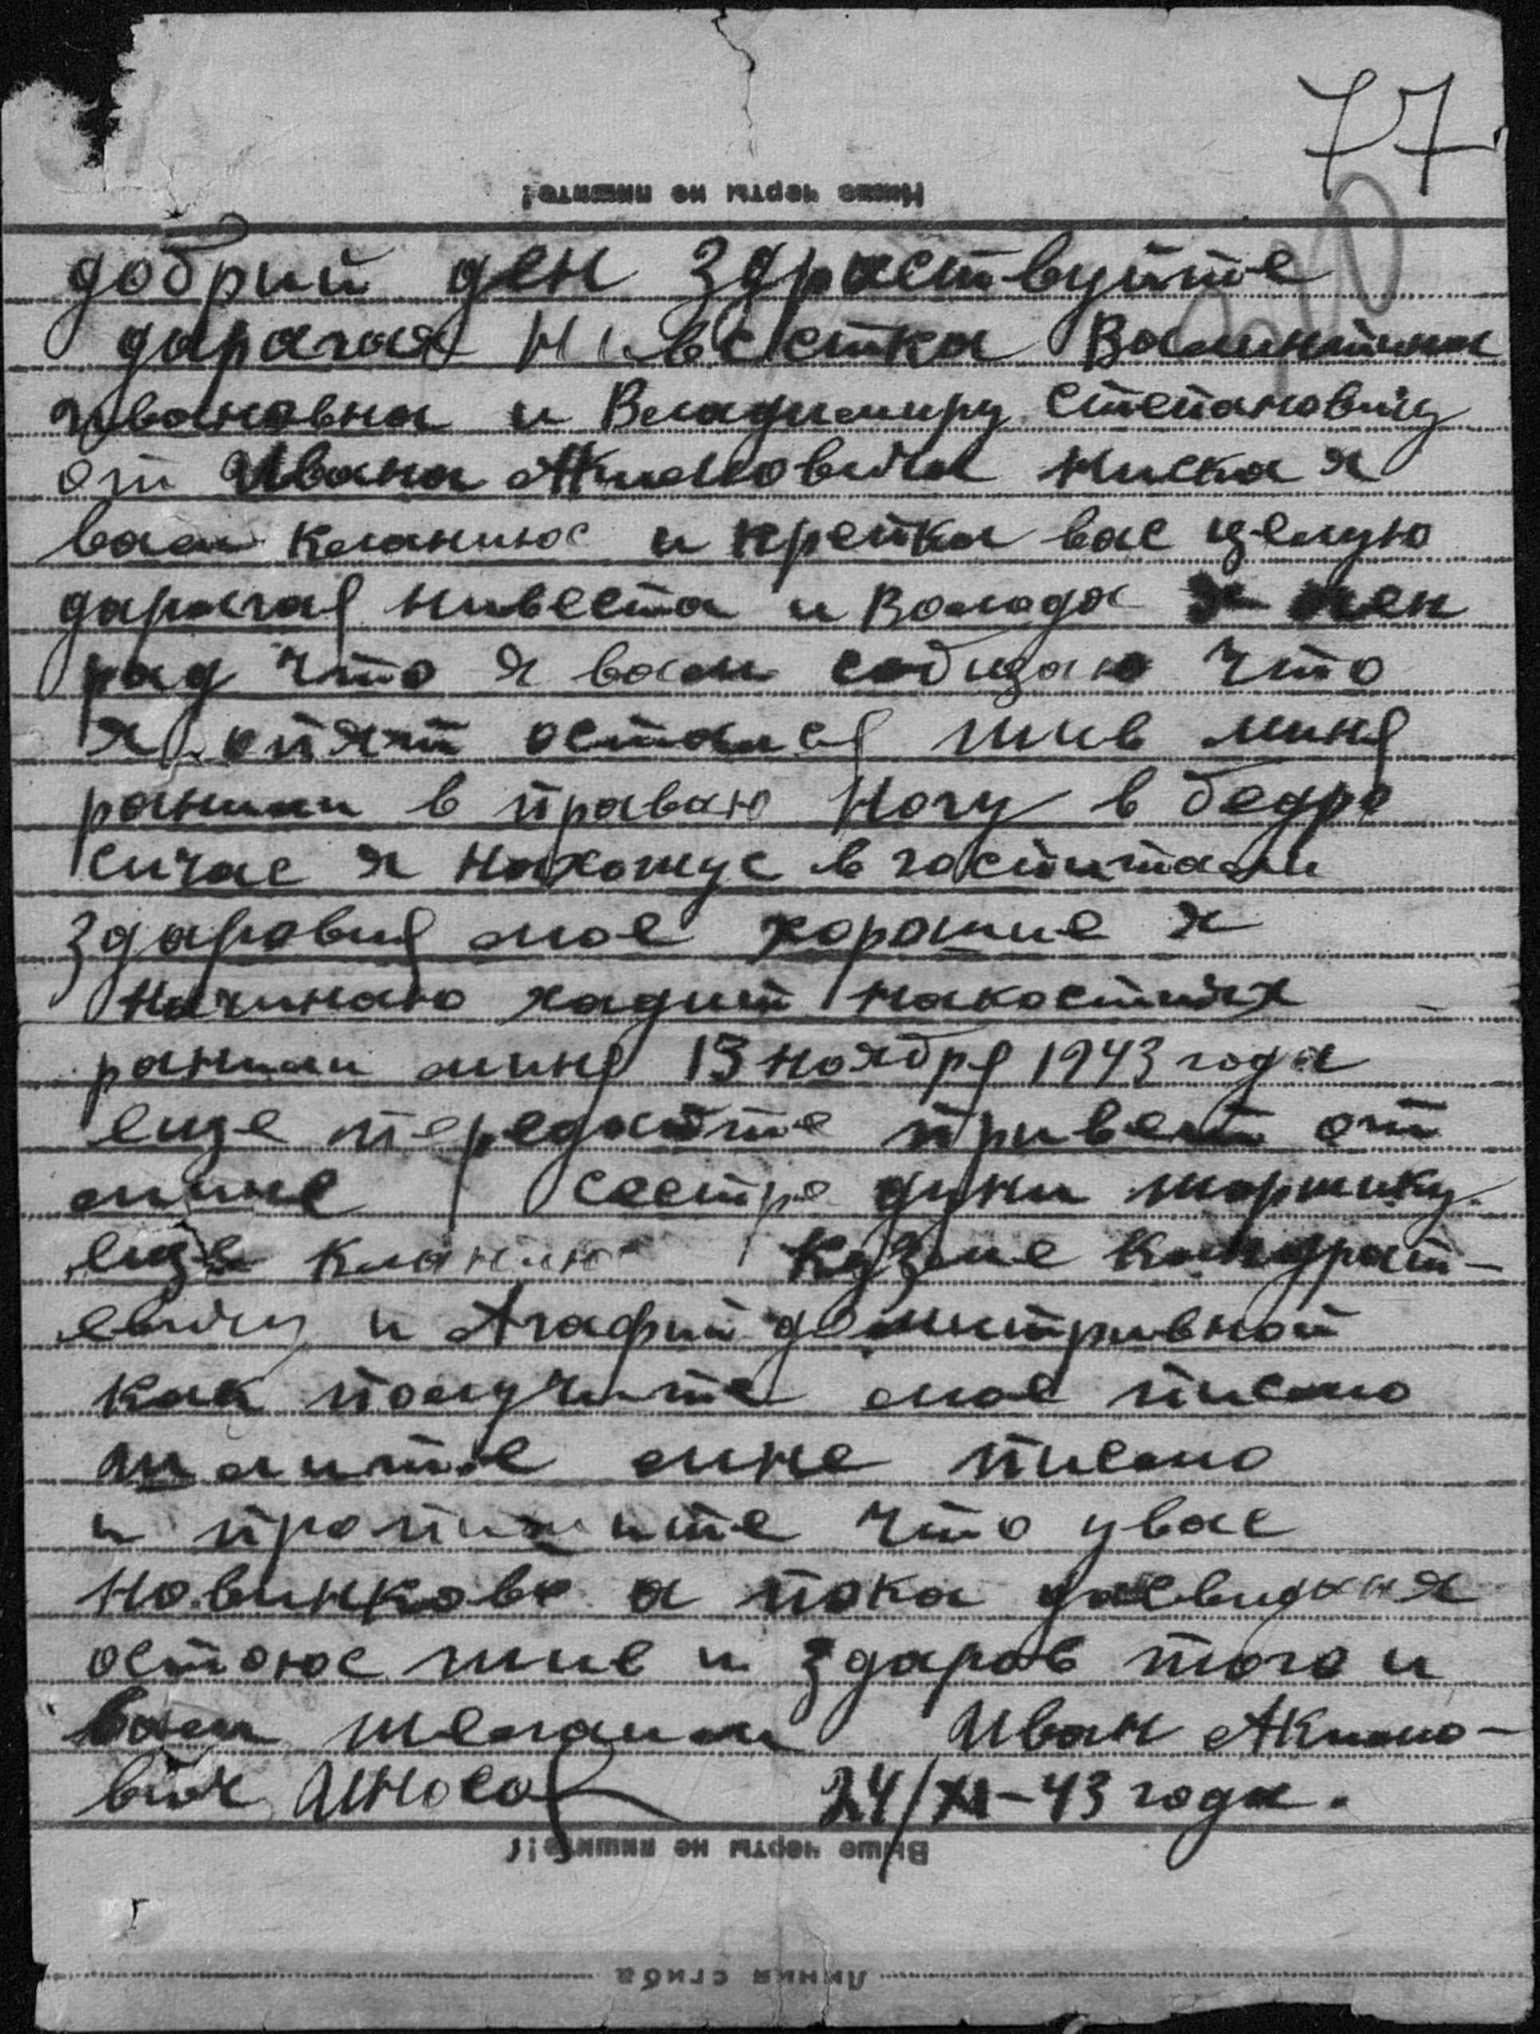 77
Ниже черты не пишите!
добрий ден Здраствуйте
дарагая Нивестка Валинтина
ивановна и Владимиру Степановичу
от Ивана Акимовича Ниска я
вам кланиюс и крепка вас целую
дарагая нивеста и Володя я очен
рад что я вам собщаю что
я опят осталса жив миня
ранили в праваю Ногу в бедро
сичас я нахожус в госпитали
здаровия мое хорошие я
начинаю хадит накостилях
ранили миня 13 ноября 1943 года
еще передайте привет от
мине сестре дуни
еще кланию Кузме Кандрат-
евичу и Агафий демитривной
как получите мое писмо
шлите мне писмо
и пропишите что увас
новинкове а пока дасвидания
остаюс жив и здаров того и
вам желаим Иван Акимо-
вич
24/XI-43 года.
Выше черты не пишите!
Линия сгиба